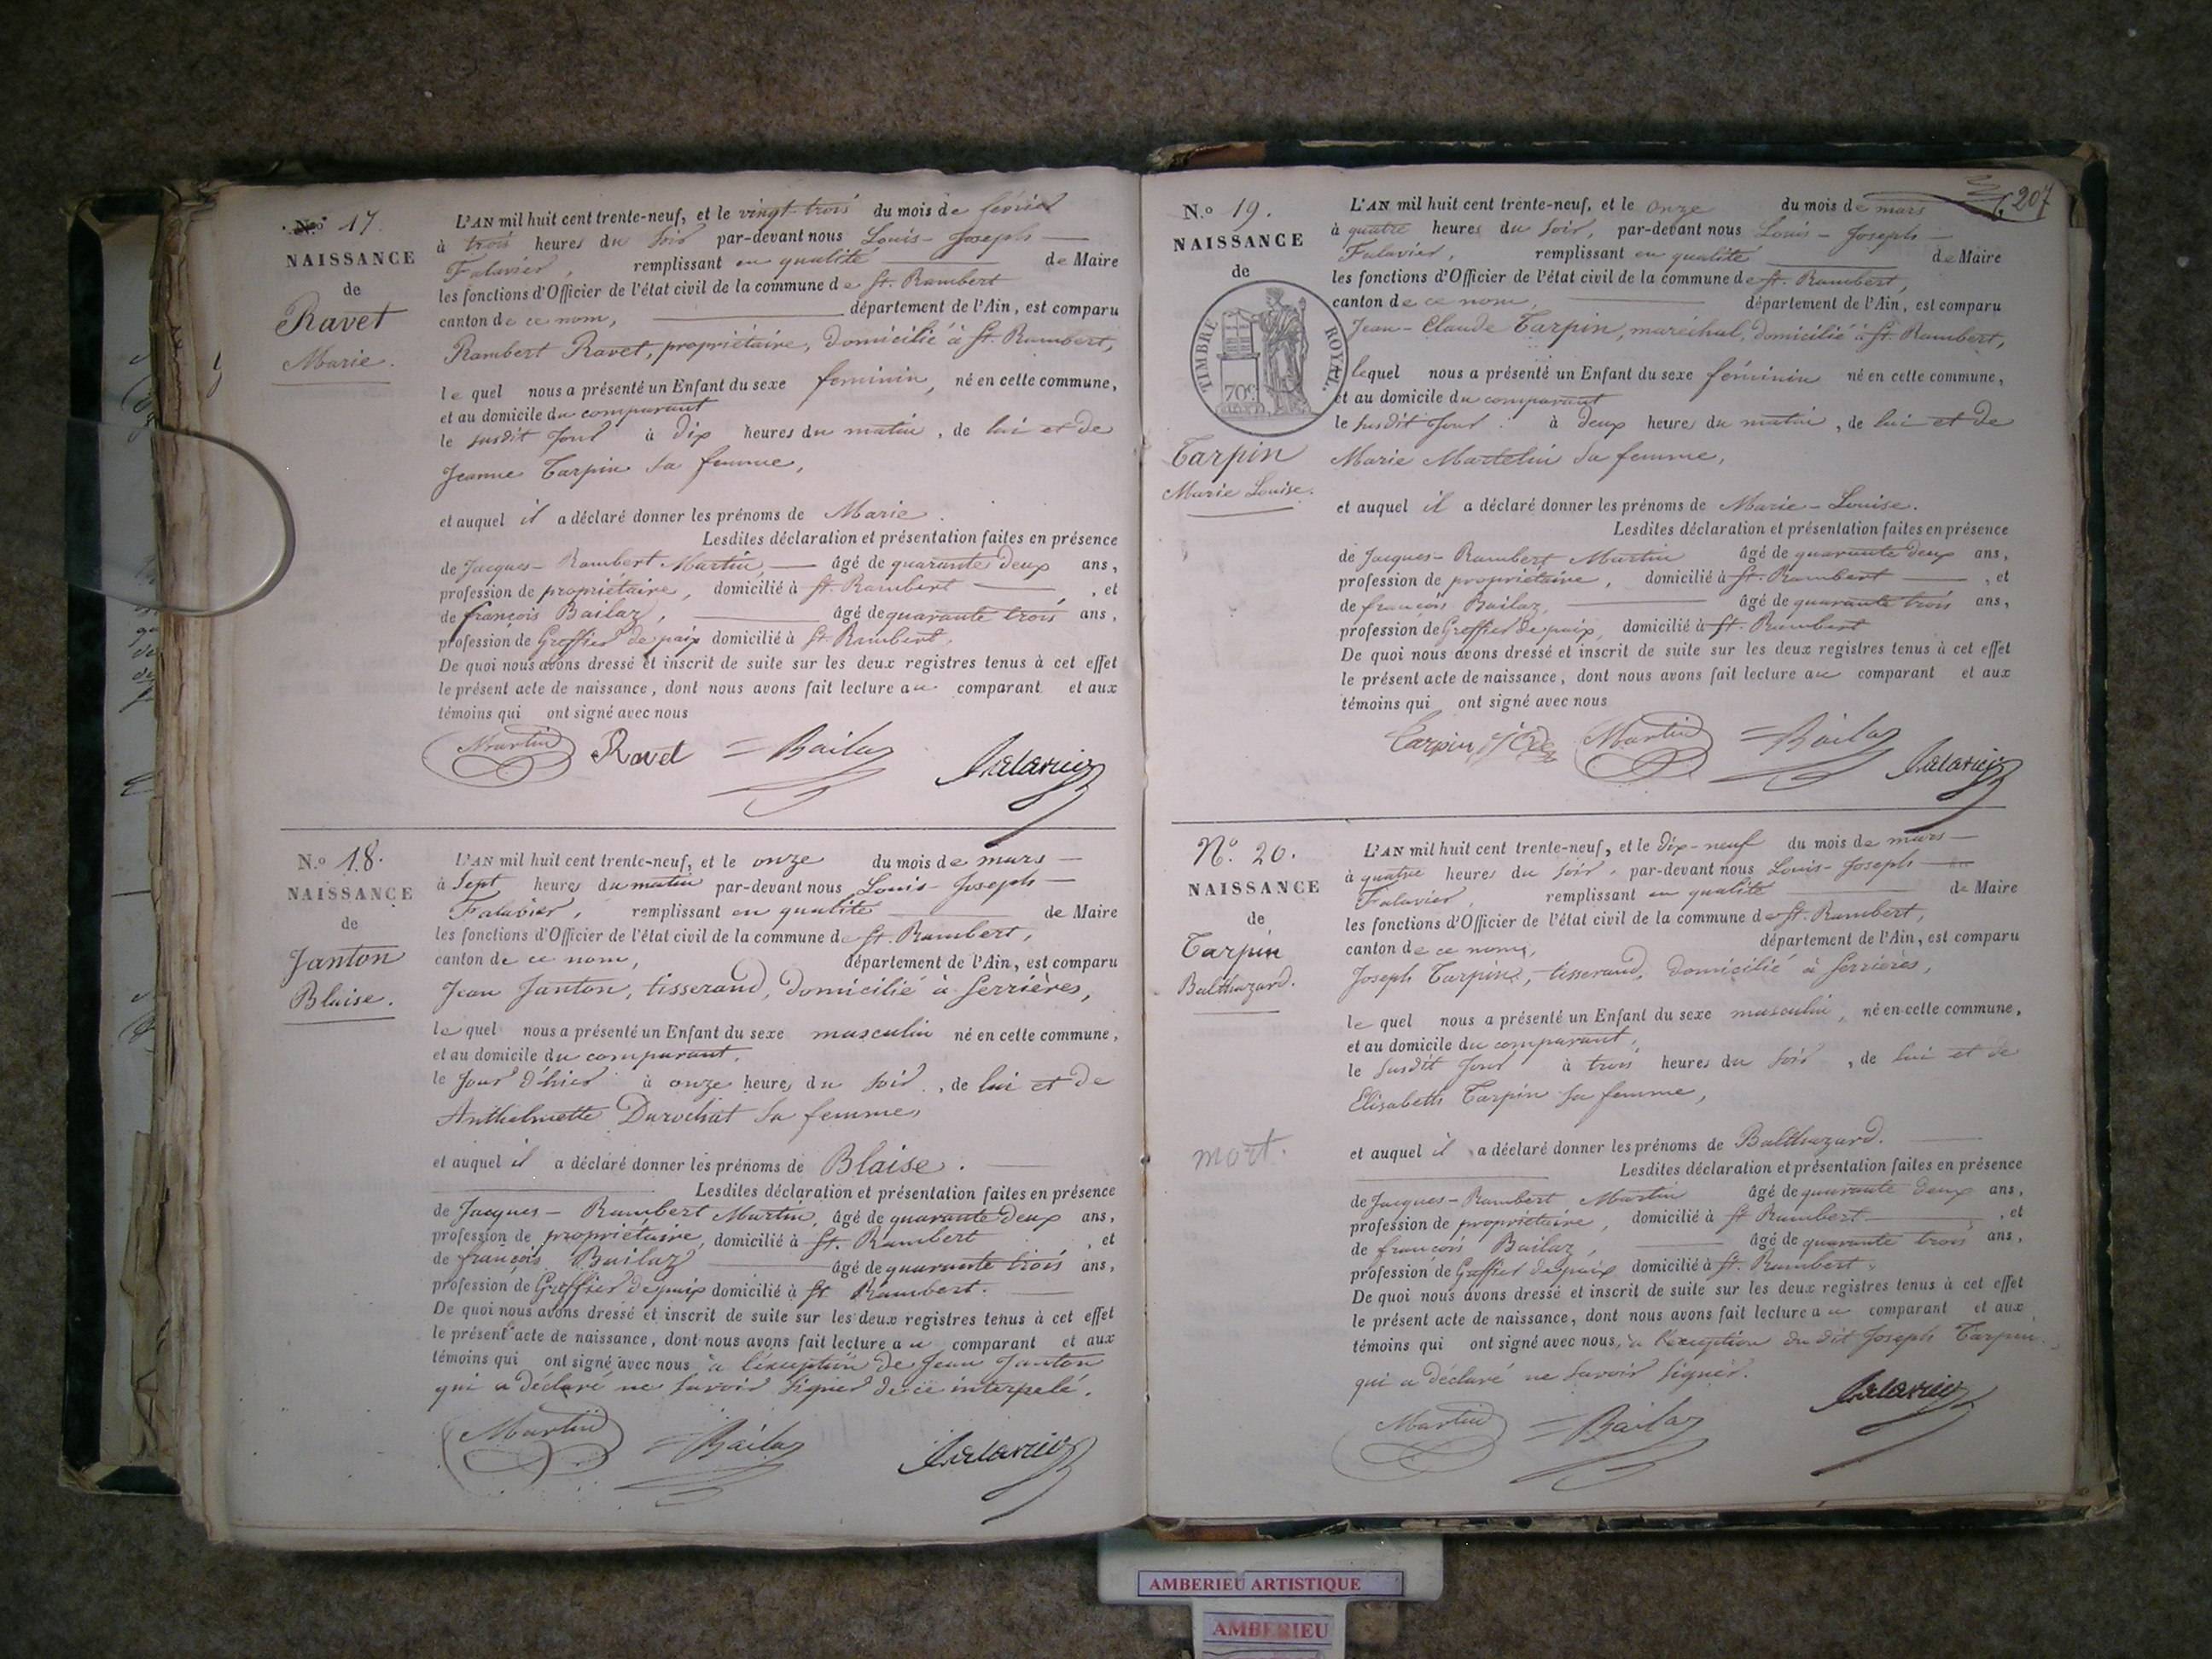 N.º 17.
NAISSANCE
de
Ravet
Marie.
L'AN mil huit cent trente-neuf, et le vingt-trois du mois de février
à trois heures du soir par-devant nous Louis-Joseph
Falavier, remplissant en qualité de Maire
les fonctions d'Officier de l'état civil de la commune de St. Rambert
canton de ce nom, département de l'Ain, est comparu
Rambert Ravet, propriétaire, domicilié à St. Rambert,
lequel nous a présenté un Enfant du sexe féminin, né en cette commune,
et au domicile du comparant
le susdit jour à dix heures du matin, de lui et de
Jeanne Tarpin sa femme,
et auquel il a déclaré donner les prénoms de Marie.
Lesdites déclaration et présentation faites en présence
de Jacques-Rambert Martin, âgé de quarante deux ans,
profession de propriétaire, domicilié à St. Rambert, et
de françois Bailaz, âgé de quarante trois ans,
profession de Greffier de paix domicilié à St. Rambert.
De quoi nous avons dressé et inscrit de suite sur les deux registres tenus à cet effet
le présent acte de naissance, dont nous avons fait lecture au comparant et aux
témoins qui ont signé avec nous
Martin Ravet Bailaz Falavier
N.º 18.
NAISSANCE
de
Janton
Blaise.
L'AN mil huit cent trente-neuf, et le onze du mois de mars
à sept heures du matin par-devant nous Louis-Joseph
Falavier, remplissant en qualité de Maire
les fonctions d'Officier de l'état civil de la commune de St. Rambert,
canton de ce nom, département de l'Ain, est comparu
Jean Janton, tisserand, domicilié à Serrières,
lequel nous a présenté un Enfant du sexe masculin né en cette commune,
et au domicile du comparant,
le jour d'hier à onze heures du soir, de lui et de
Anthelmette Durochat sa femme,
et auquel il a déclaré donner les prénoms de Blaise.
Lesdites déclaration et présentation faites en présence
de Jacques-Rambert Martin, âgé de quarante deux ans,
profession de propriétaire, domicilié à St. Rambert, et
de françois Bailaz âgé de quarante trois ans,
profession de Greffier de paix domicilié à St. Rambert.
De quoi nous avons dressé et inscrit de suite sur les deux registres tenus à cet effet
le présent acte de naissance, dont nous avons fait lecture au comparant et aux
témoins qui ont signé avec nous à l'exception de Jean Janton
qui a déclaré ne savoir signer de ce interpelé.
Martin Bailaz Falavier
207
N.º 19.
NAISSANCE
de
TIMBRE ROYAL.
70 c.
Tarpin
Marie Louise.
L'AN mil huit cent trente-neuf, et le onze du mois de mars
à quatre heures du soir, par-devant nous Louis-Joseph
Falavier, remplissant en qualité de Maire
les fonctions d'Officier de l'état civil de la commune de St. Rambert,
canton de ce nom, département de l'Ain, est comparu
Jean-Claude Tarpin, maréchal, domicilié à St. Rambert,
lequel nous a présenté un Enfant du sexe féminin né en cette commune,
et au domicile du comparant
le susdit jour à deux heures du matin, de lui et de
Marie Martelin sa femme,
et auquel il a déclaré donner les prénoms de Marie-Louise.
Lesdites déclaration et présentation faites en présence
de Jacques-Rambert Martin âgé de quarante deux ans,
profession de propriétaire, domicilié à St. Rambert, et
de françois Bailaz, âgé de quarante trois ans,
profession de Greffier de paix, domicilié à St. Rambert
De quoi nous avons dressé et inscrit de suite sur les deux registres tenus à cet effet
le présent acte de naissance, dont nous avons fait lecture au comparant et aux
témoins qui ont signé avec nous
Tarpin Martin Bailaz Falavier
N.º 20.
NAISSANCE
de
Tarpin
Balthazard.
mort.
L'AN mil huit cent trente-neuf, et le dix-neuf du mois de mars
à quatre heures du soir, par-devant nous Louis-Joseph
Falavier, remplissant en qualité de Maire
les fonctions d'Officier de l'état civil de la commune de St. Rambert,
canton de ce nom, département de l'Ain, est comparu
Joseph Tarpin, tisserand, domicilié à Serrières,
lequel nous a présenté un Enfant du sexe masculin, né en cette commune,
et au domicile du comparant,
le susdit jour à trois heures du soir, de lui et de
Elisabeth Tarpin sa femme,
et auquel il a déclaré donner les prénoms de Balthazard.
Lesdites déclaration et présentation faites en présence
de Jacques-Rambert Martin âgé de quarante deux ans,
profession de propriétaire, domicilié à St. Rambert, et
de françois Bailaz, âgé de quarante trois ans,
profession de Greffier de paix domicilié à St. Rambert,
De quoi nous avons dressé et inscrit de suite sur les deux registres tenus à cet effet
le présent acte de naissance, dont nous avons fait lecture au comparant et aux
témoins qui ont signé avec nous, à l'exception du dit Joseph Tarpin
qui a déclaré ne savoir signer.
Martin Bailaz Falavier
AMBERIEU ARTISTIQUE
AMBERIEU